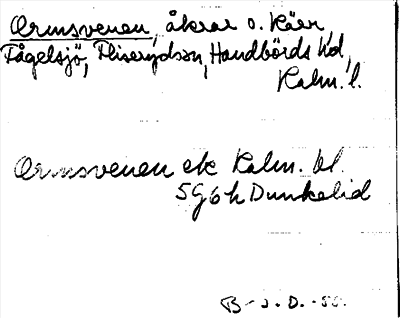 Ormsvenen, åkrar o. kärr,
Fågelsjö, Fliserydssn, Handbörds hd,
Kalm. l.
Ormsvenen ek Kalm. bl.
5G6h Dunkelid
B-s.D.-50.